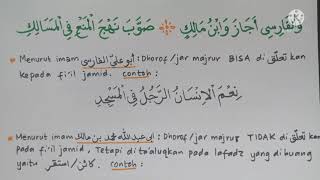 وَالْفَارِسِى أَجَازَ وَابْنُ مَالِكٍ ۞ صَوَّبَ نَهْجَ الْمَنْعِ فِي الْمَسَالِكِ
* Menurut imam أبو علي الفارسي : Dhorof/jar majrur BISA di تعلّق kan
kepada fi'il jamid. contoh :
نِعْمَ الْإِنْسَانُ الرَّجُلُ فِي الْمَسْجِدِ
* Menurut imam ابي عبد الله محمد بن مالك : Dhorof/jar majrur TIDAK di تعلّق kan
pada fi'il jamid, Tetapi di ta'aluqkan pada lafadz yang dibuang
yaitu كائن/استقر. contoh :